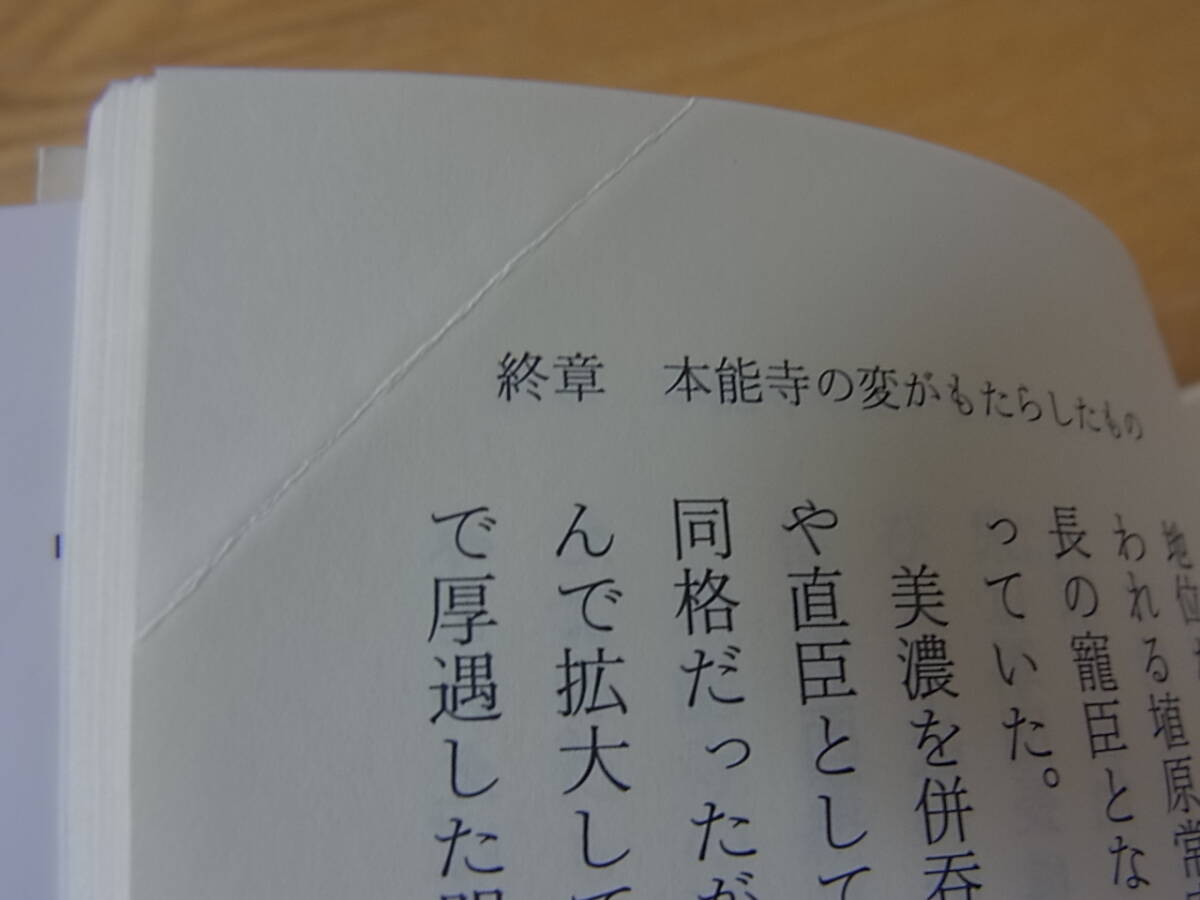 終章　本能寺の変がもたらしたもの
地位
われる埴原常
長の寵臣とな
っていた。
美濃を併呑
や直臣として
同格だったが
んで拡大して
で厚遇した明